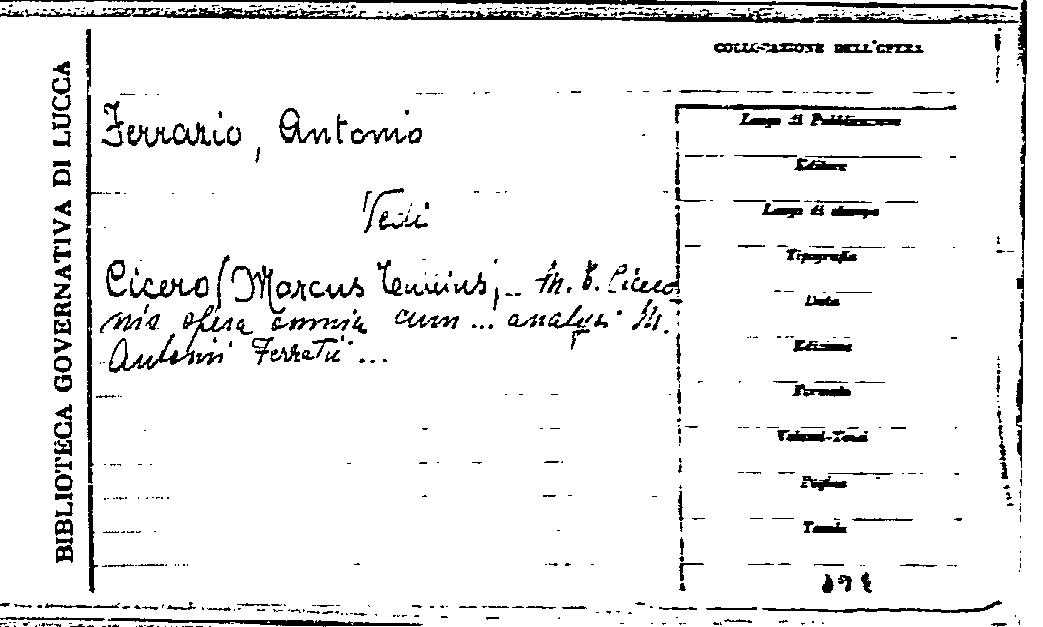 BIBLIOTECA GOVERNATIVA DI LUCCA
COLLOCAZIONE DELL'OPERA
Ferrario, Antonio
Vedi
Cicero (Marcus Tullius), - M. T. Cicero
nis opera omnia cum ... analysi M.
Antonii Ferratii ...
Luogo di Pubblicazione
Editore
Luogo di stampa
Tipografia
Data
Edizione
Formato
Volumi-Tomi
Pagine
Tavole